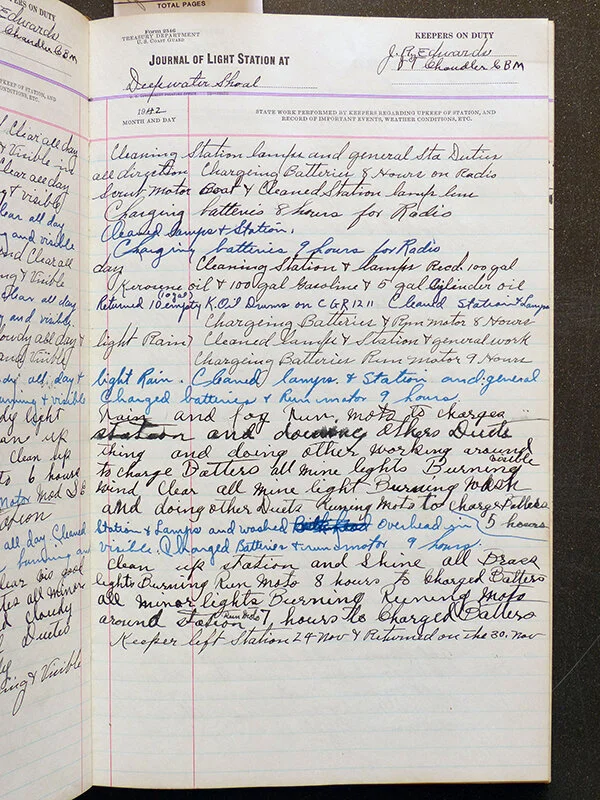 TOTAL PAGES
KEEPERS ON DUTY
Edwards
Chandler CBM
UPKEEP OF STATION, AND
CONDITIONS, ETC.
Clear all day
& Visible
Clear all day
& visible
Clear all day
and visible
and Clear all
& Visible
Clear all day
and visible
Cloudy all day &
and Visible
all day &
and visible
Light
up
Clean up
6 hours
Motor
Station
all day Cleaned
burning and
all minor
cloudy
Dueties
& Visible
Form 2546
TREASURY DEPARTMENT
U. S. COAST GUARD
KEEPERS ON DUTY
JOURNAL OF LIGHT STATION AT
J. R. Edwards
Chandler CBM
Deepwater Shoal
1942
MONTH AND DAY
STATE WORK PERFORMED BY KEEPERS REGARDING UPKEEP OF STATION, AND
RECORD OF IMPORTANT EVENTS, WEATHER CONDITIONS, ETC.
Cleaning Station lamps and general Sta Duties
all direction Chargeing Batteries 8 Hours on Radio
Scrub Motor Boat & Cleaned Station lamp
Charging batteries 8 hours for Radio
Cleaned lamps & Station.
Charging batteries 9 hours for Radio
day Cleaning Station & lamps Recd. 100 gal
Kerosene oil & 100 gal Gasoline & 5 gal Cylinder oil
Returned 10 empty (10 gal) K. Oil Drums on CGR 1211 Cleaned Station & Lamps
Chargeing Batteries & Run motor 8 Hours
light Rain Cleaned lamps & Station & general work
Chargeing Batteries Run Motor 9 Hours
light Rain. Cleaned lamps & Station and general
Charged batteries & Run motor 9 hours.
Rain and fog Run moto to charge
station and doing others Duets
thing and doing other working around
to charge Batters all mine lights Burning visible
wind Clear all mine light Burning Wash
and doing other Duets Runing Moto to Charge Batters
Station & Lamps and washed overhead in 5 hours
visible. Charged Batteries & run motor 9 hours.
Clean up station and Shine all Brass
lights Burning Run Moto 8 hours to Charged Batters
all minor lights Burning Runing Moto
around station Run Moto 7, hours to Charged Batters
Keeper left Station 24 Nov & Returned on the 30. Nov